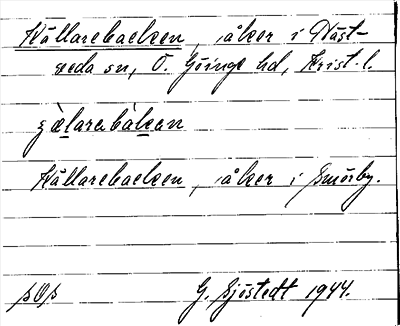 Källarebacken, åker i Näst-
veda sn, Ö. Göinge hd, Krist. l.
Källarebacken, åker i Smörby.
G. Sjöstedt 1944.